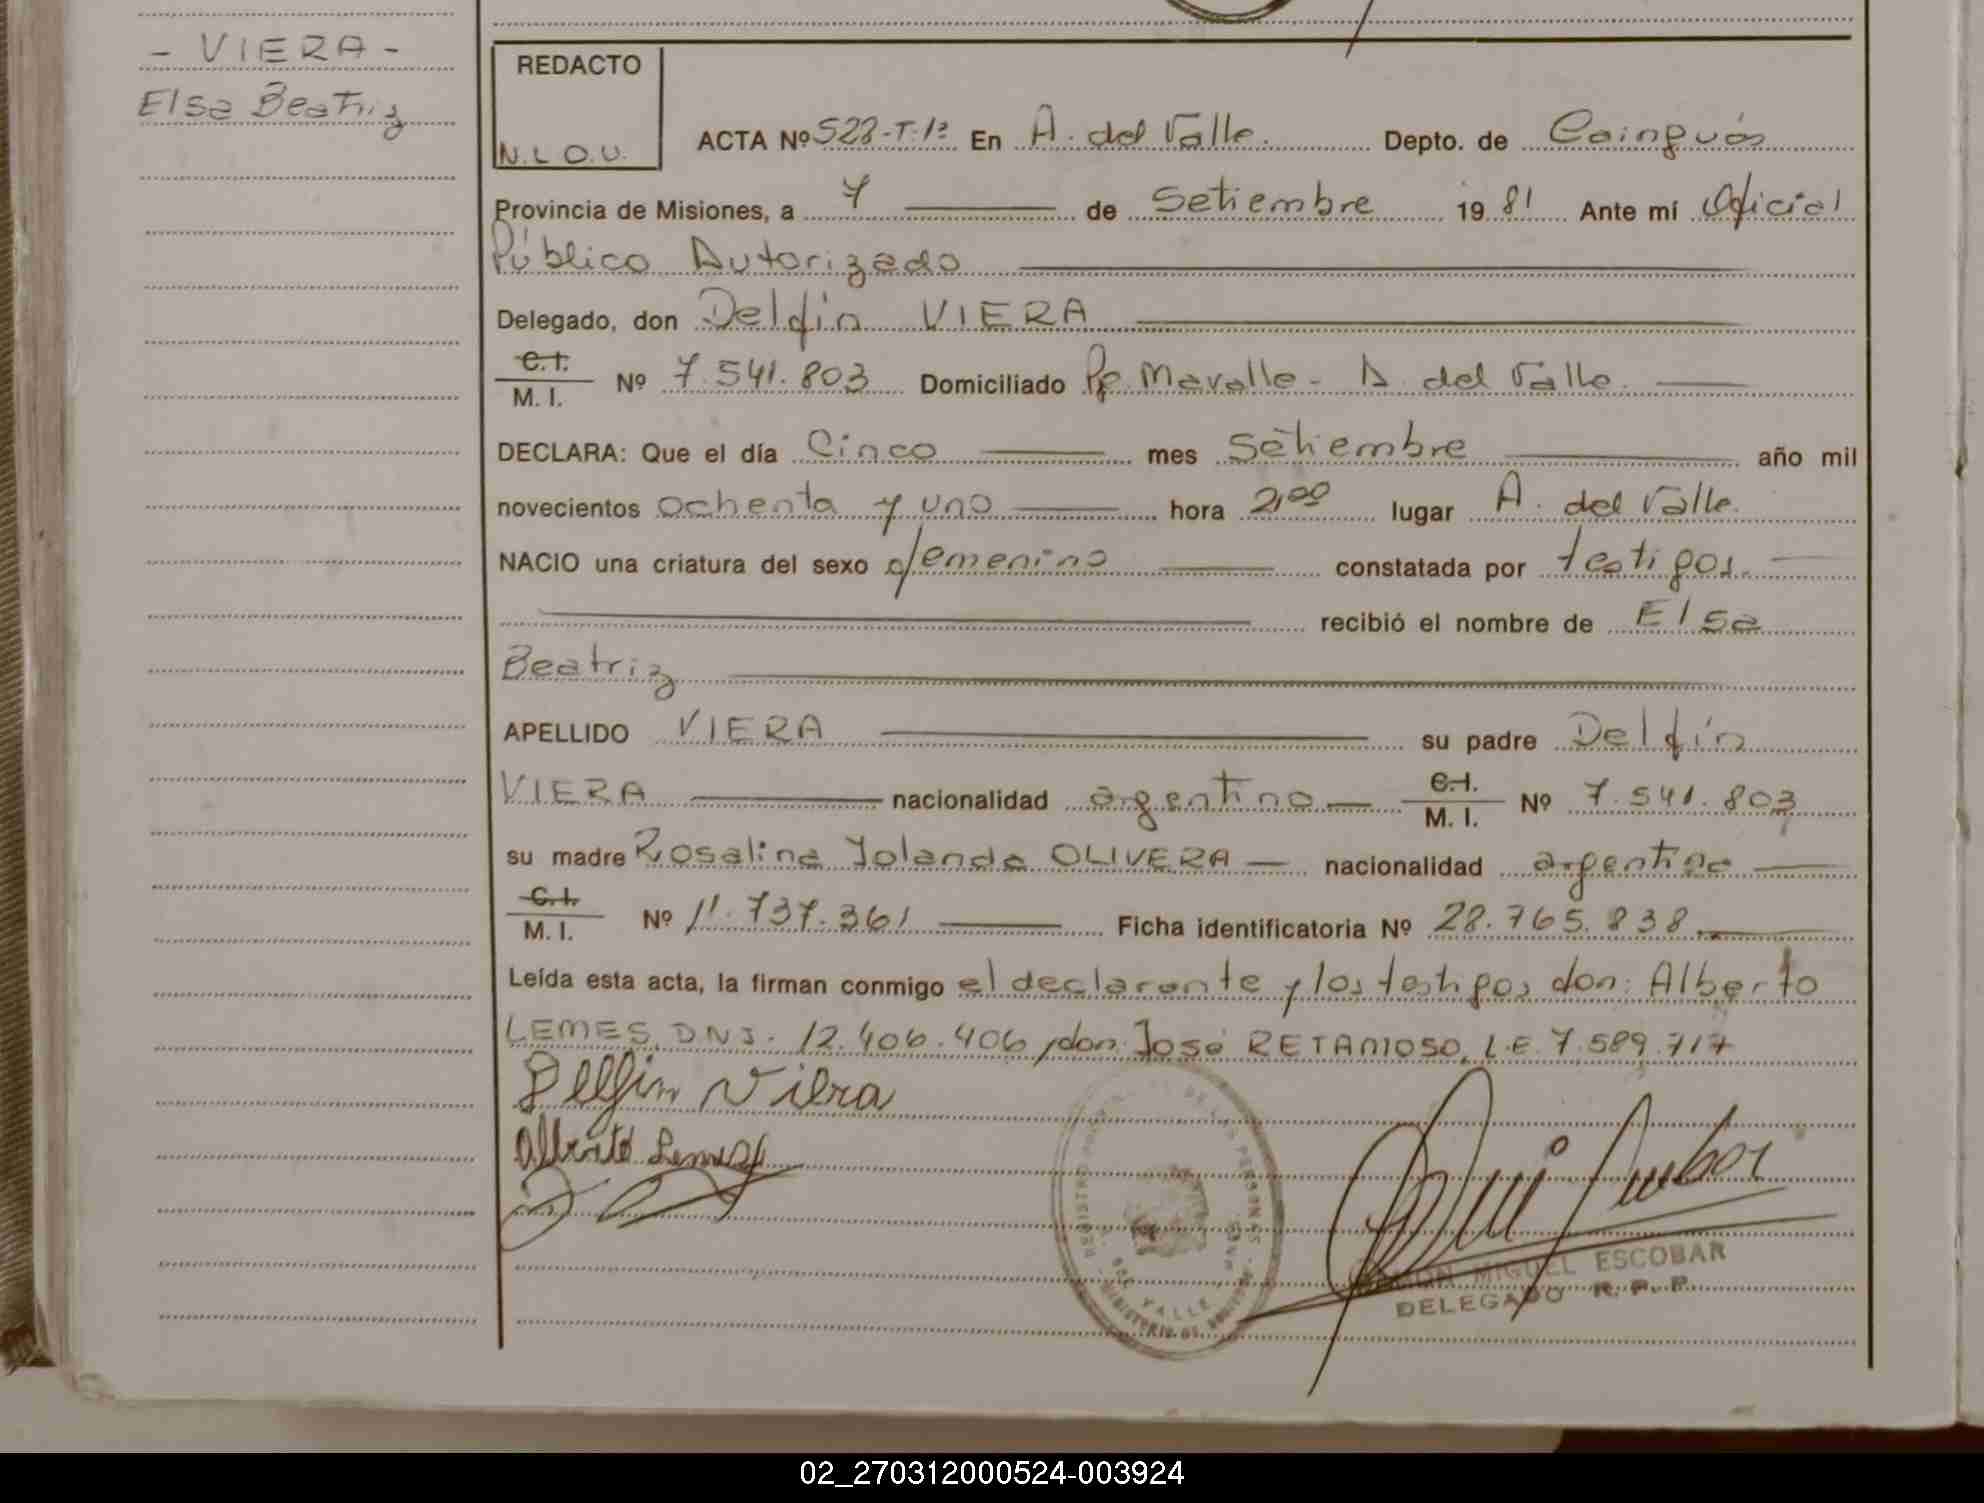 - VIERA -
Elsa Beatriz
REDACTO
N.L O.U.
ACTA Nº 528-T-1º En A. del Valle. Depto. de Cainguás
Provincia de Misiones, a 7 de Setiembre 19 81 Ante mí Oficial
Público Autorizado
Delegado, don Delfín VIERA
C.I.
M. I. Nº 7.541.803 Domiciliado Pje. Mavalle - A. del Valle.
DECLARA: Que el día Cinco mes Setiembre año mil
novecientos ochenta y uno hora 2,00 lugar A. del Valle.
NACIO una criatura del sexo femenino constatada por testigos.
recibió el nombre de Elsa
Beatriz
APELLIDO VIERA su padre Delfín
VIERA nacionalidad argentino C.I. M. I. Nº 7.541.803
su madre Rosalina Yolanda OLIVERA nacionalidad argentina
C.I.
M. I. Nº 11.737.361 Ficha identificatoria Nº 28.765.838
Leída esta acta, la firman conmigo el declarante y los testigos don: Alberto
LEMES, D.N.I. 12.406.406, don José RETAMOSO, L.E. 7.589.717
Delfin Viera
Alberto Lemes
REGISTRO DE LAS PERSONAS
DEL VALLE
MINISTERIO DE
RAMON MIGUEL ESCOBAR
DELEGADO R. P. P.
02_270312000524-003924